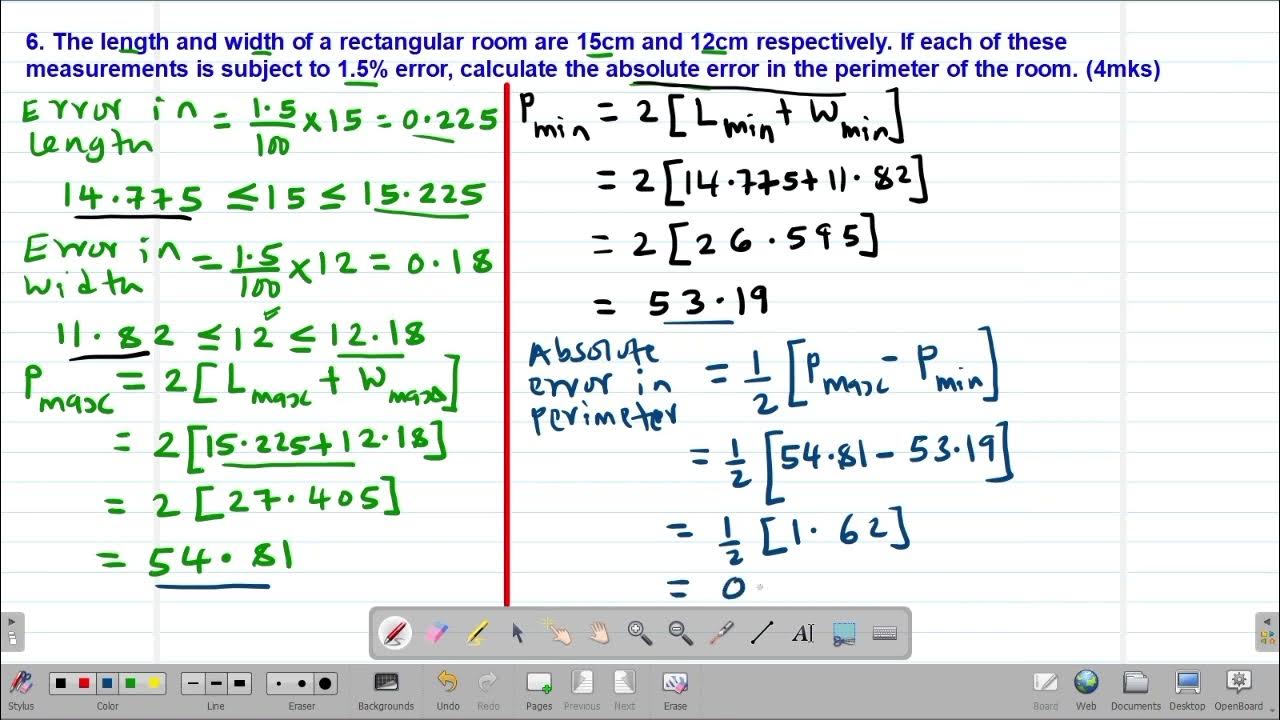 6. The length and width of a rectangular room are 15cm and 12cm respectively. If each of these
measurements is subject to 1.5% error, calculate the absolute error in the perimeter of the room. (4mks)
Error in length = 1.5/100 × 15 = 0.225
14.775 ≤ 15 ≤ 15.225
Error in width = 1.5/100 × 12 = 0.18
11.82 ≤ 12 ≤ 12.18
Pmax = 2[Lmax + Wmax]
= 2[15.225+12.18]
= 2[27.405]
= 54.81
Pmin = 2[Lmin + Wmin]
= 2[14.775+11.82]
= 2[26.595]
= 53.19
Absolute error in perimeter = 1/2 [Pmax - Pmin]
= 1/2 [54.81 - 53.19]
= 1/2 [1.62]
= 0
Stylus
Color
Line
Eraser
Backgrounds
Undo
Redo
Pages
Previous
Next
Erase
Board
Web
Documents
Desktop
OpenBoard